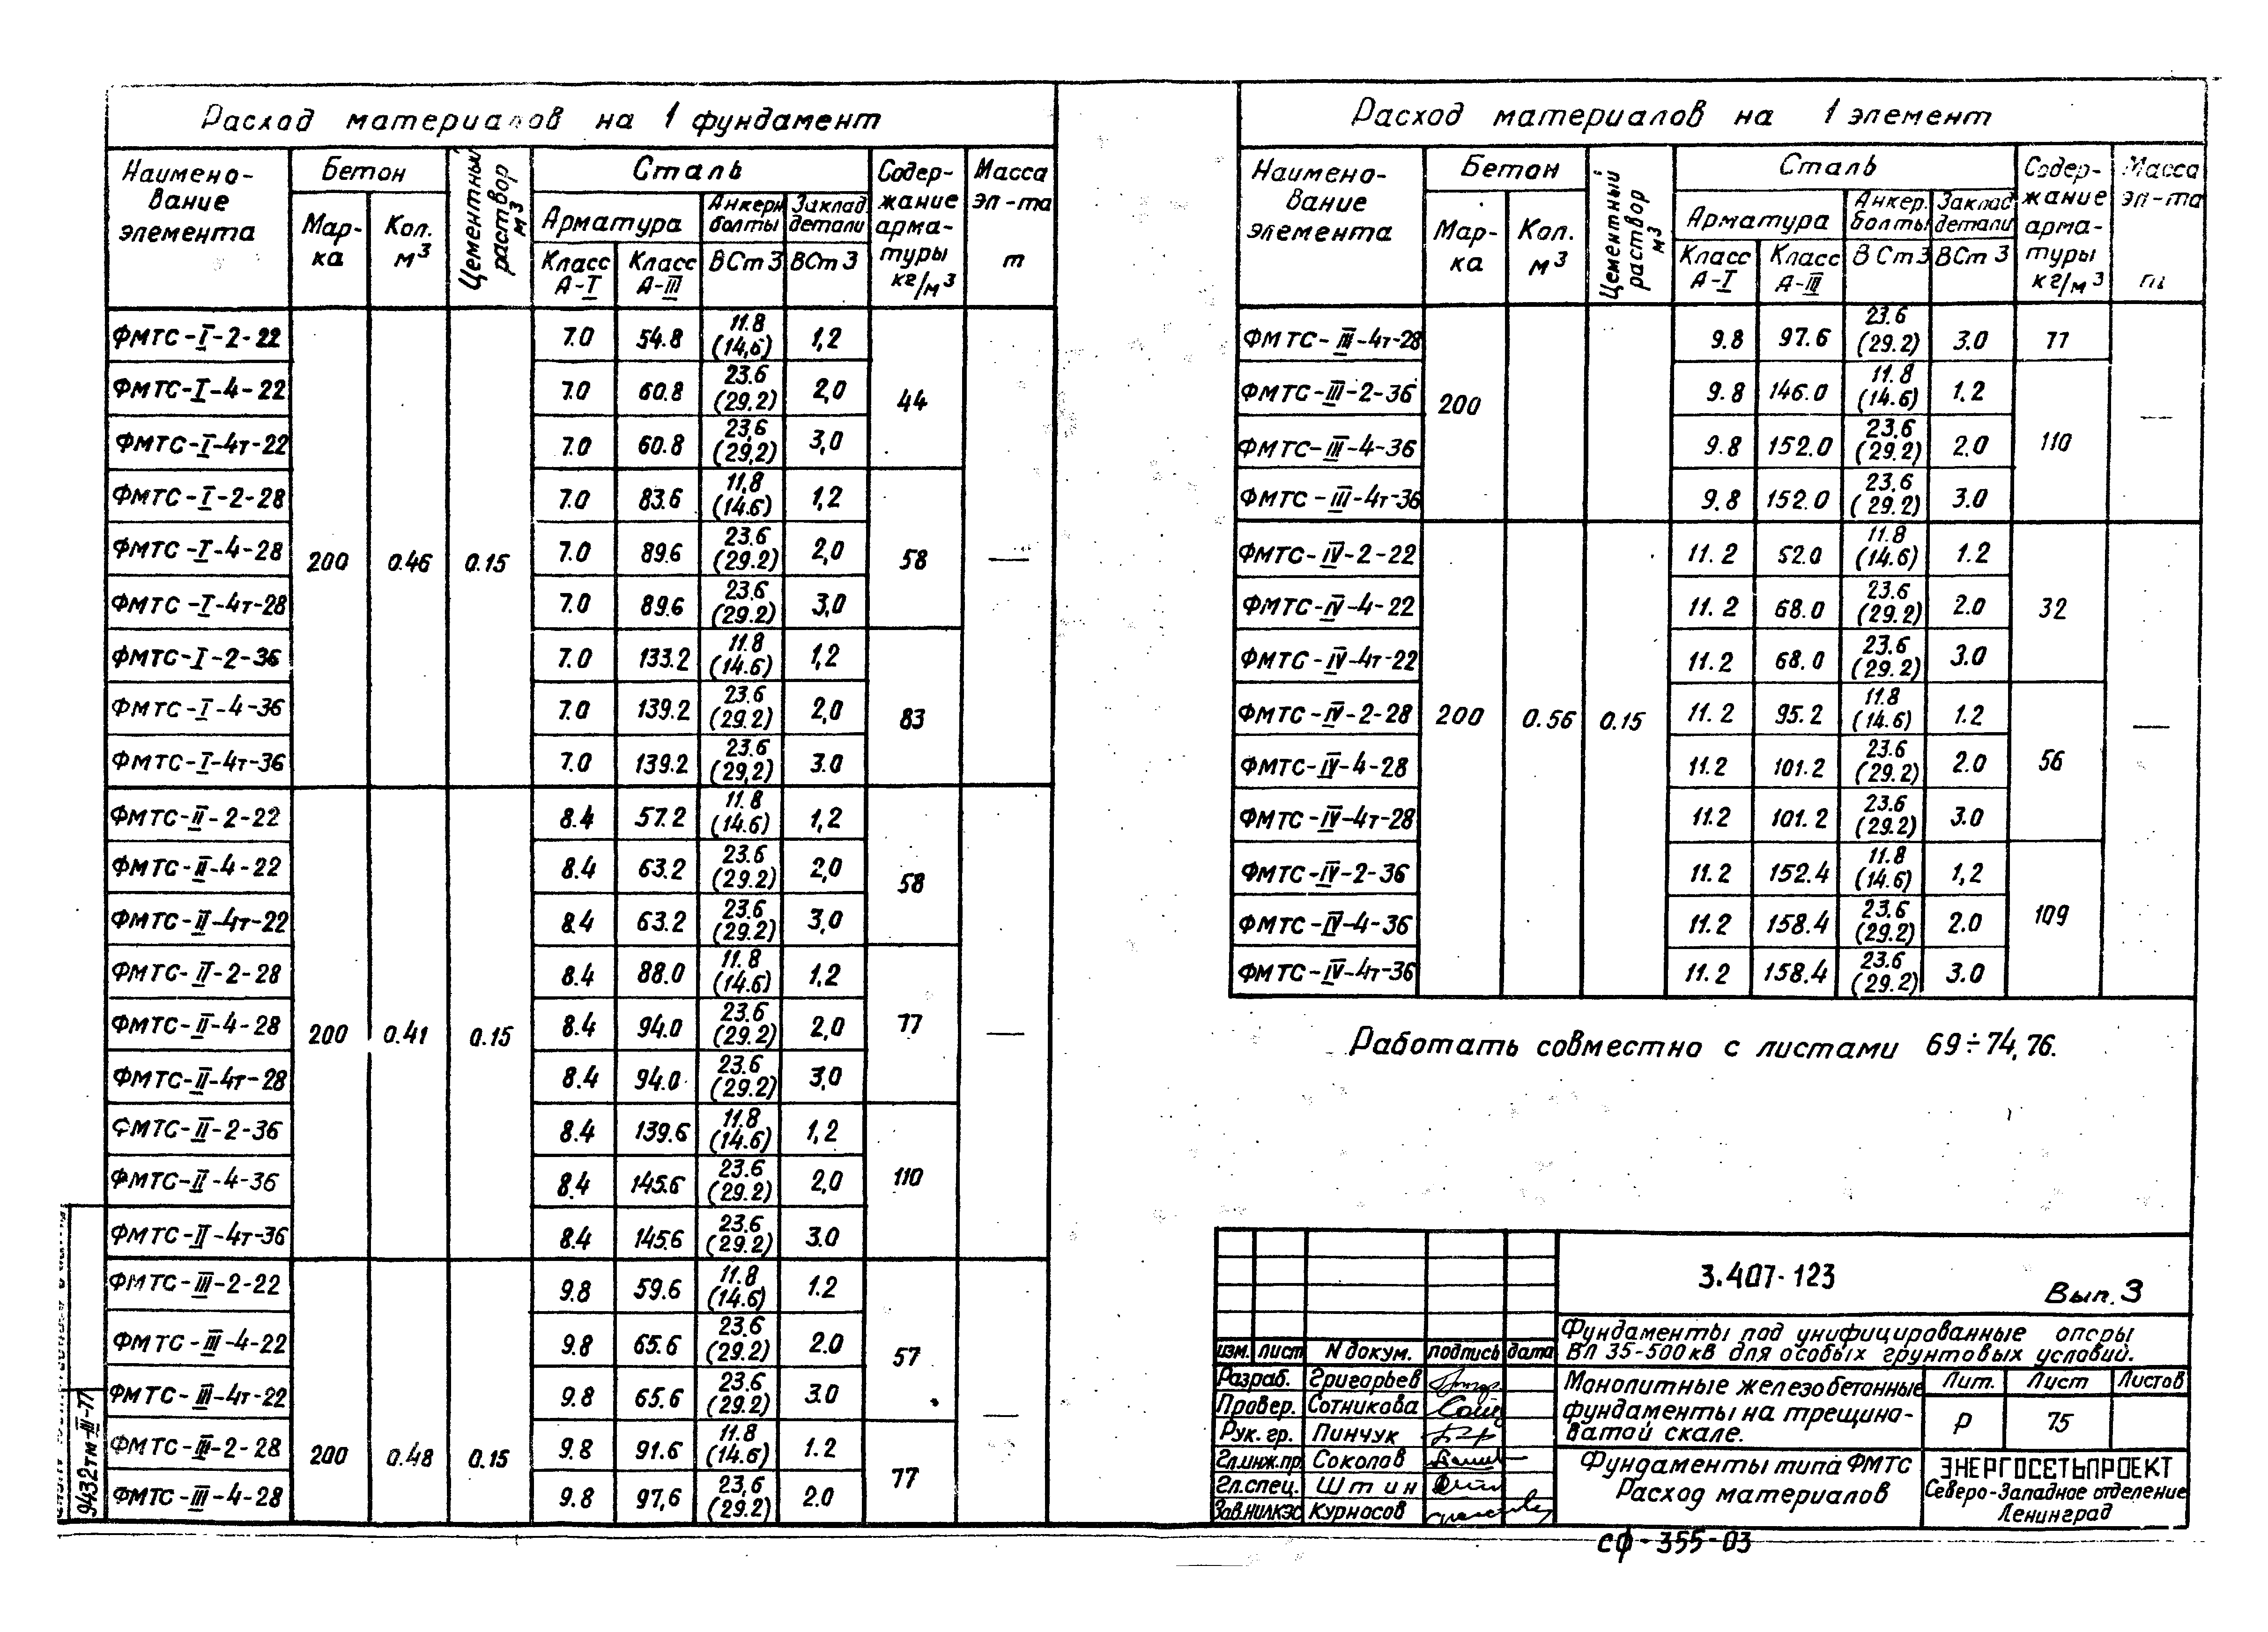 Расход материалов на 1 фундамент
Наимено-
вание
элемента
Бетон
Мар-
ка
Кол.
м3
Цементный
раствор
м3
Сталь
Арматура
Класс
А-I
Класс
А-III
Анкерн
болты
ВСт 3
Заклад.
детали
ВСт 3
Содер-
жание
арма-
туры
кг/м3
Масса
эл-та
т
ФМТС-I-2-22 7.0 54.8 11.8 (14,6) 1,2
ФМТС-I-4-22 7.0 60.8 23.6 (29.2) 2,0 44
ФМТС-I-4т-22 7.0 60.8 23,6 (29,2) 3,0
ФМТС-I-2-28 7.0 83.6 11,8 (14.6) 1,2
ФМТС-I-4-28 200 0.46 0.15 7.0 89.6 23.6 (29.2) 2,0 58 —
ФМТС-I-4т-28 7.0 89.6 23.6 (29.2) 3,0
ФМТС-I-2-36 7.0 133.2 11.8 (14.6) 1,2
ФМТС-I-4-36 7.0 139.2 23.6 (29.2) 2,0 83
ФМТС-I-4т-36 7.0 139.2 23.6 (29,2) 3.0
ФМТС-II-2-22 8.4 57.2 11.8 (14.6) 1,2
ФМТС-II-4-22 8.4 63.2 23.6 (29.2) 2,0 58
ФМТС-II-4т-22 8.4 63.2 23.6 (29.2) 3,0
ФМТС-II-2-28 8.4 88.0 11.8 (14.6) 1.2
ФМТС-II-4-28 200 0.41 0.15 8.4 94.0 23.6 (29.2) 2,0 77 —
ФМТС-II-4т-28 8.4 94.0 23.6 (29.2) 3,0
ФМТС-II-2-36 8.4 139.6 11.8 (14.6) 1,2
ФМТС-II-4-36 8.4 145.6 23.6 (29.2) 2,0 110
ФМТС-II-4т-36 8.4 145.6 23.6 (29.2) 3.0
ФМТС-III-2-22 9.8 59.6 11.8 (14.6) 1.2
ФМТС-III-4-22 9.8 65.6 23.6 (29.2) 2.0 57
ФМТС-III-4т-22 9.8 65.6 23.6 (29.2) 3.0 —
ФМТС-III-2-28 200 0.48 0.15 9.8 91.6 11.8 (14.6) 1.2 77
ФМТС-III-4-28 9.8 97,6 23,6 (29.2) 2.0
Расход материалов на 1 элемент
Наимено-
вание
элемента
Бетон
Мар-
ка
Кол.
м3
Цементный
раствор
м3
Сталь
Арматура
Класс
А-I
Класс
А-III
Анкер.
болты
ВСт3
Заклад
детали
ВСт 3
Содер-
жание
арма-
туры
кг/м3
Масса
эл-та
т
ФМТС-III-4т-28 9.8 97.6 23.6 (29.2) 3.0 77
ФМТС-III-2-36 200 9.8 146.0 11.8 (14.6) 1.2 —
ФМТС-III-4-36 9.8 152.0 23.6 (29.2) 2.0 110
ФМТС-III-4т-36 9.8 152.0 23.6 (29.2) 3.0
ФМТС-IV-2-22 11.2 52.0 11.8 (14.6) 1.2
ФМТС-IV-4-22 11.2 68.0 23.6 (29.2) 2.0 32
ФМТС-IV-4т-22 11.2 68.0 23.6 (29.2) 3.0
ФМТС-IV-2-28 200 0.56 0.15 11.2 95.2 11.8 (14.6) 1.2 —
ФМТС-IV-4-28 11.2 101.2 23.6 (29.2) 2.0 56
ФМТС-IV-4т-28 11.2 101.2 23.6 (29.2) 3.0
ФМТС-IV-2-36 11.2 152.4 11.8 (14.6) 1,2
ФМТС-IV-4-36 11.2 158.4 23.6 (29.2) 2.0 109
ФМТС-IV-4т-36 11.2 158.4 23.6 (29.2) 3.0
Работать совместно с листами 69÷74, 76.
3.407-123
Вып. 3
Фундаменты под унифицированные опоры
ВЛ 35-500кВ для особых грунтовых условий.
изм. лист N докум. подпись дата
Разраб. Григорьев
Провер. Сотникова
Рук. гр. Пинчук
Гл.инж.пр Соколов
Гл.спец. Штин
Зав.НИЛКЭС Курносов
Монолитные железобетонные
фундаменты на трещино-
ватой скале.
Лит. Лист Листов
Р 75
Фундаменты типа ФМТС
Расход материалов
ЭНЕРГОСЕТЬПРОЕКТ
Северо-Западное отделение
Ленинград
сф-355-03
9432тм-III-77